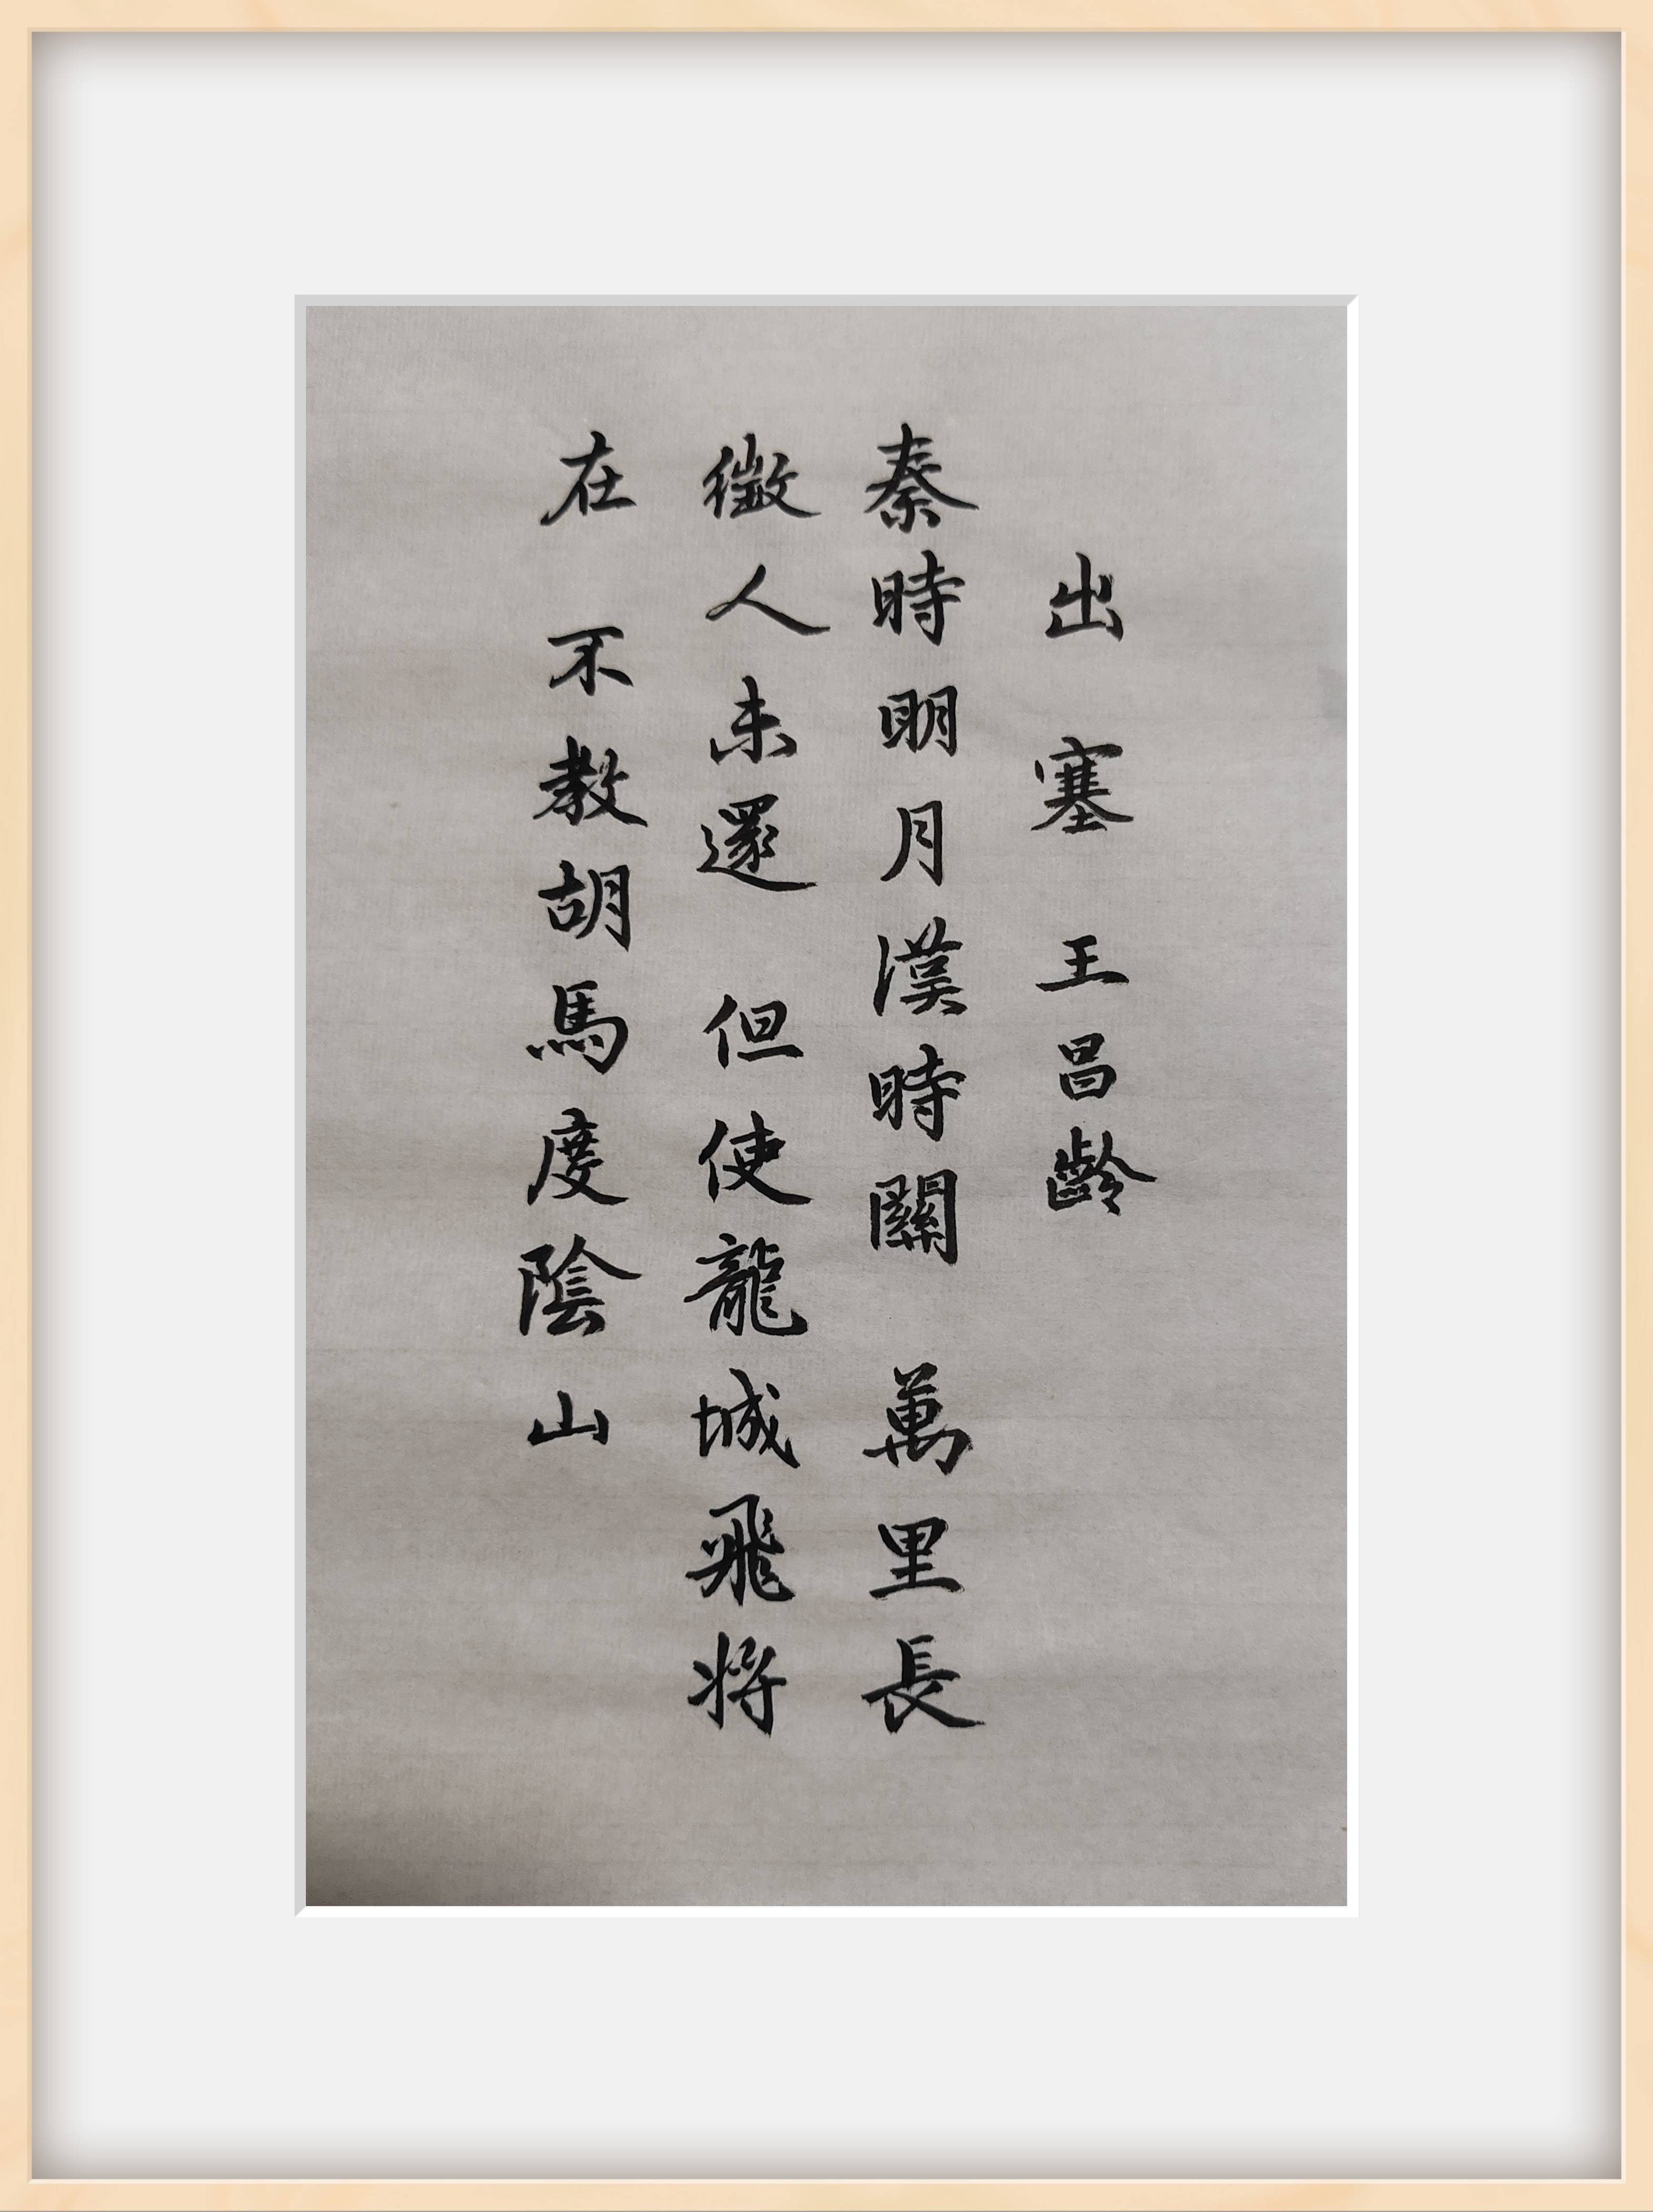 出 塞 王昌齡
秦時明月漢時關 萬里長
徵人未還 但使龍城飛將
在 不教胡馬度陰山